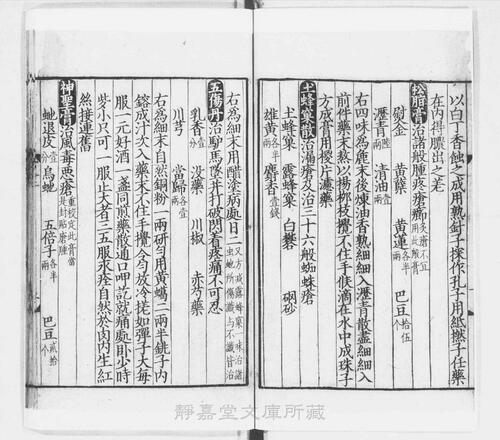 以白丁香蝕之或用熟針子探作孔子用紙撚子任藥
在內得膿出之差
松脂膏治諸般腫疼瘡癤
鬱金 黃蘗 黃連 巴豆
瀝青 清油
右四味為麁末後煉油香熟細細入瀝青散盡細細入
前件藥末熬以楊柳枝攪不住手候滴在水中成珠子
方成膏用楔片攤藥
土蜂窠散治漏瘡及治三十六般蜘蛛瘡
土蜂窠 露蜂窠 白礬 硇砂
雄黃各半兩 麝香壹錢
右為細末用醋塗病處日二
五傷丹治驢馬墜并打破閃着疼痛不可忍
乳香壹分 沒藥 川椒 赤芍藥
川芎 當歸各壹兩
右為細末自然銅粉一兩研勻用黃蠟二兩半銚子內
鎔成汁次入藥末不住手攪令勻放冷搓如彈子大每
服一元好酒一盞同煎藥散通口呷訖就痛處卧少時
些小只可一服止大者三五服永痊自然於肉內生紅
然接連舊
神聖膏治風毒惡瘡
虵退皮壹分 烏虵 五倍子各半兩 巴豆貳拾个
靜嘉堂文庫所藏